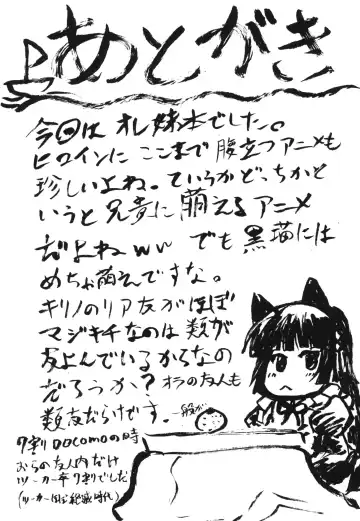 あとがき
今回は オレ妹本でした。
ヒロインに ここまで 腹立つアニメも
珍しいよね。ていうかどっちかと
いうと 兄貴に 萌えるアニメ
だよねww でも 黒猫には
めちゃ萌えですな。
キリノのリア友がほぼ
マジキチなのは 類が
友よんでいるからなの
だろうか? オラの友人も
類友だらけです。一般が
9割 DOCOMOの時
おらの友人内だけ
ツーカー率 9割でしだ